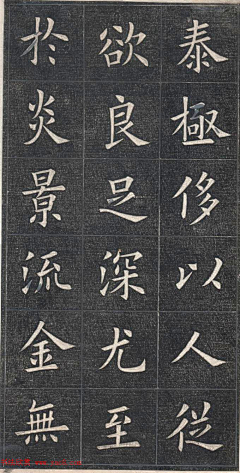 泰極侈以人従
欲良足深尤至
於炎景流金無